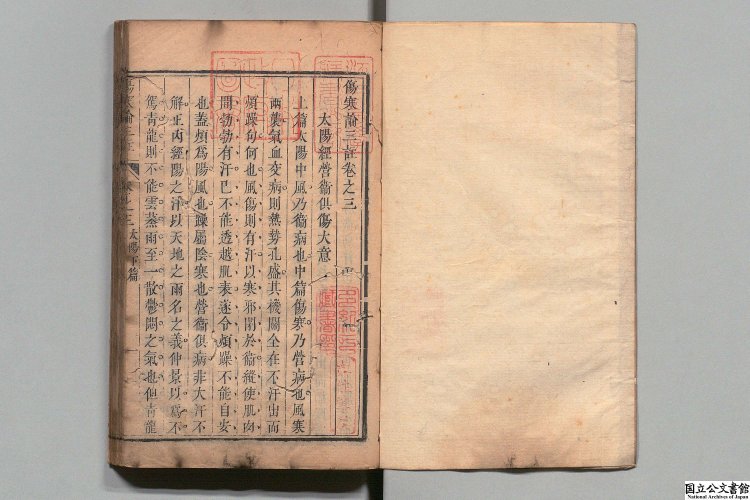 傷寒論三註卷之三
太陽經營衞俱傷大意一
上篇太陽中風乃衞病也中篇傷寒乃營病也風寒
兩襲氣血交病則熱勢孔盛其機關全在不汗出而
煩躁句何也風傷則有汗以寒邪閉於衞縱使肌肉
間勃勃有汗已不能透越肌表遂令煩躁不能自安
也蓋煩爲陽風也躁屬陰寒也營衞俱病非大汗不
解正内經陽之汗以天地之雨名之義仲景以爲不
駕靑龍則不能雲蒸雨至一散鬱悶之氣也但靑龍
傷寒論三註
卷之三
太陽下篇
国立公文書館
National Archives of Japan